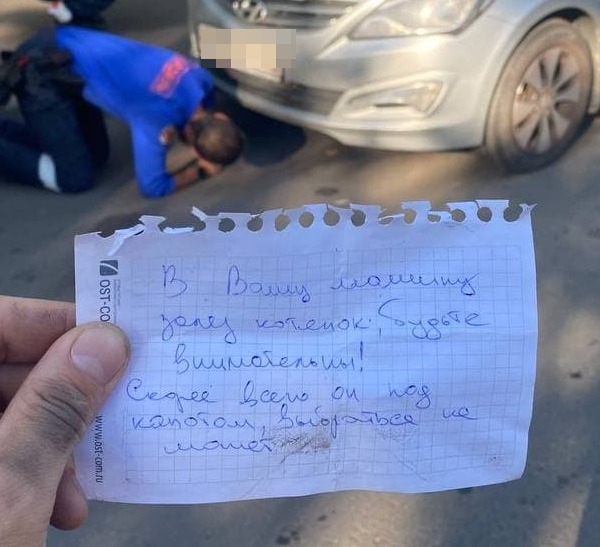 В Вашу машину
залез котенок, будьте
внимательны!
Скорее всего он под
капотом, выбраться не
может
OST-CO
www.ost-com.ru